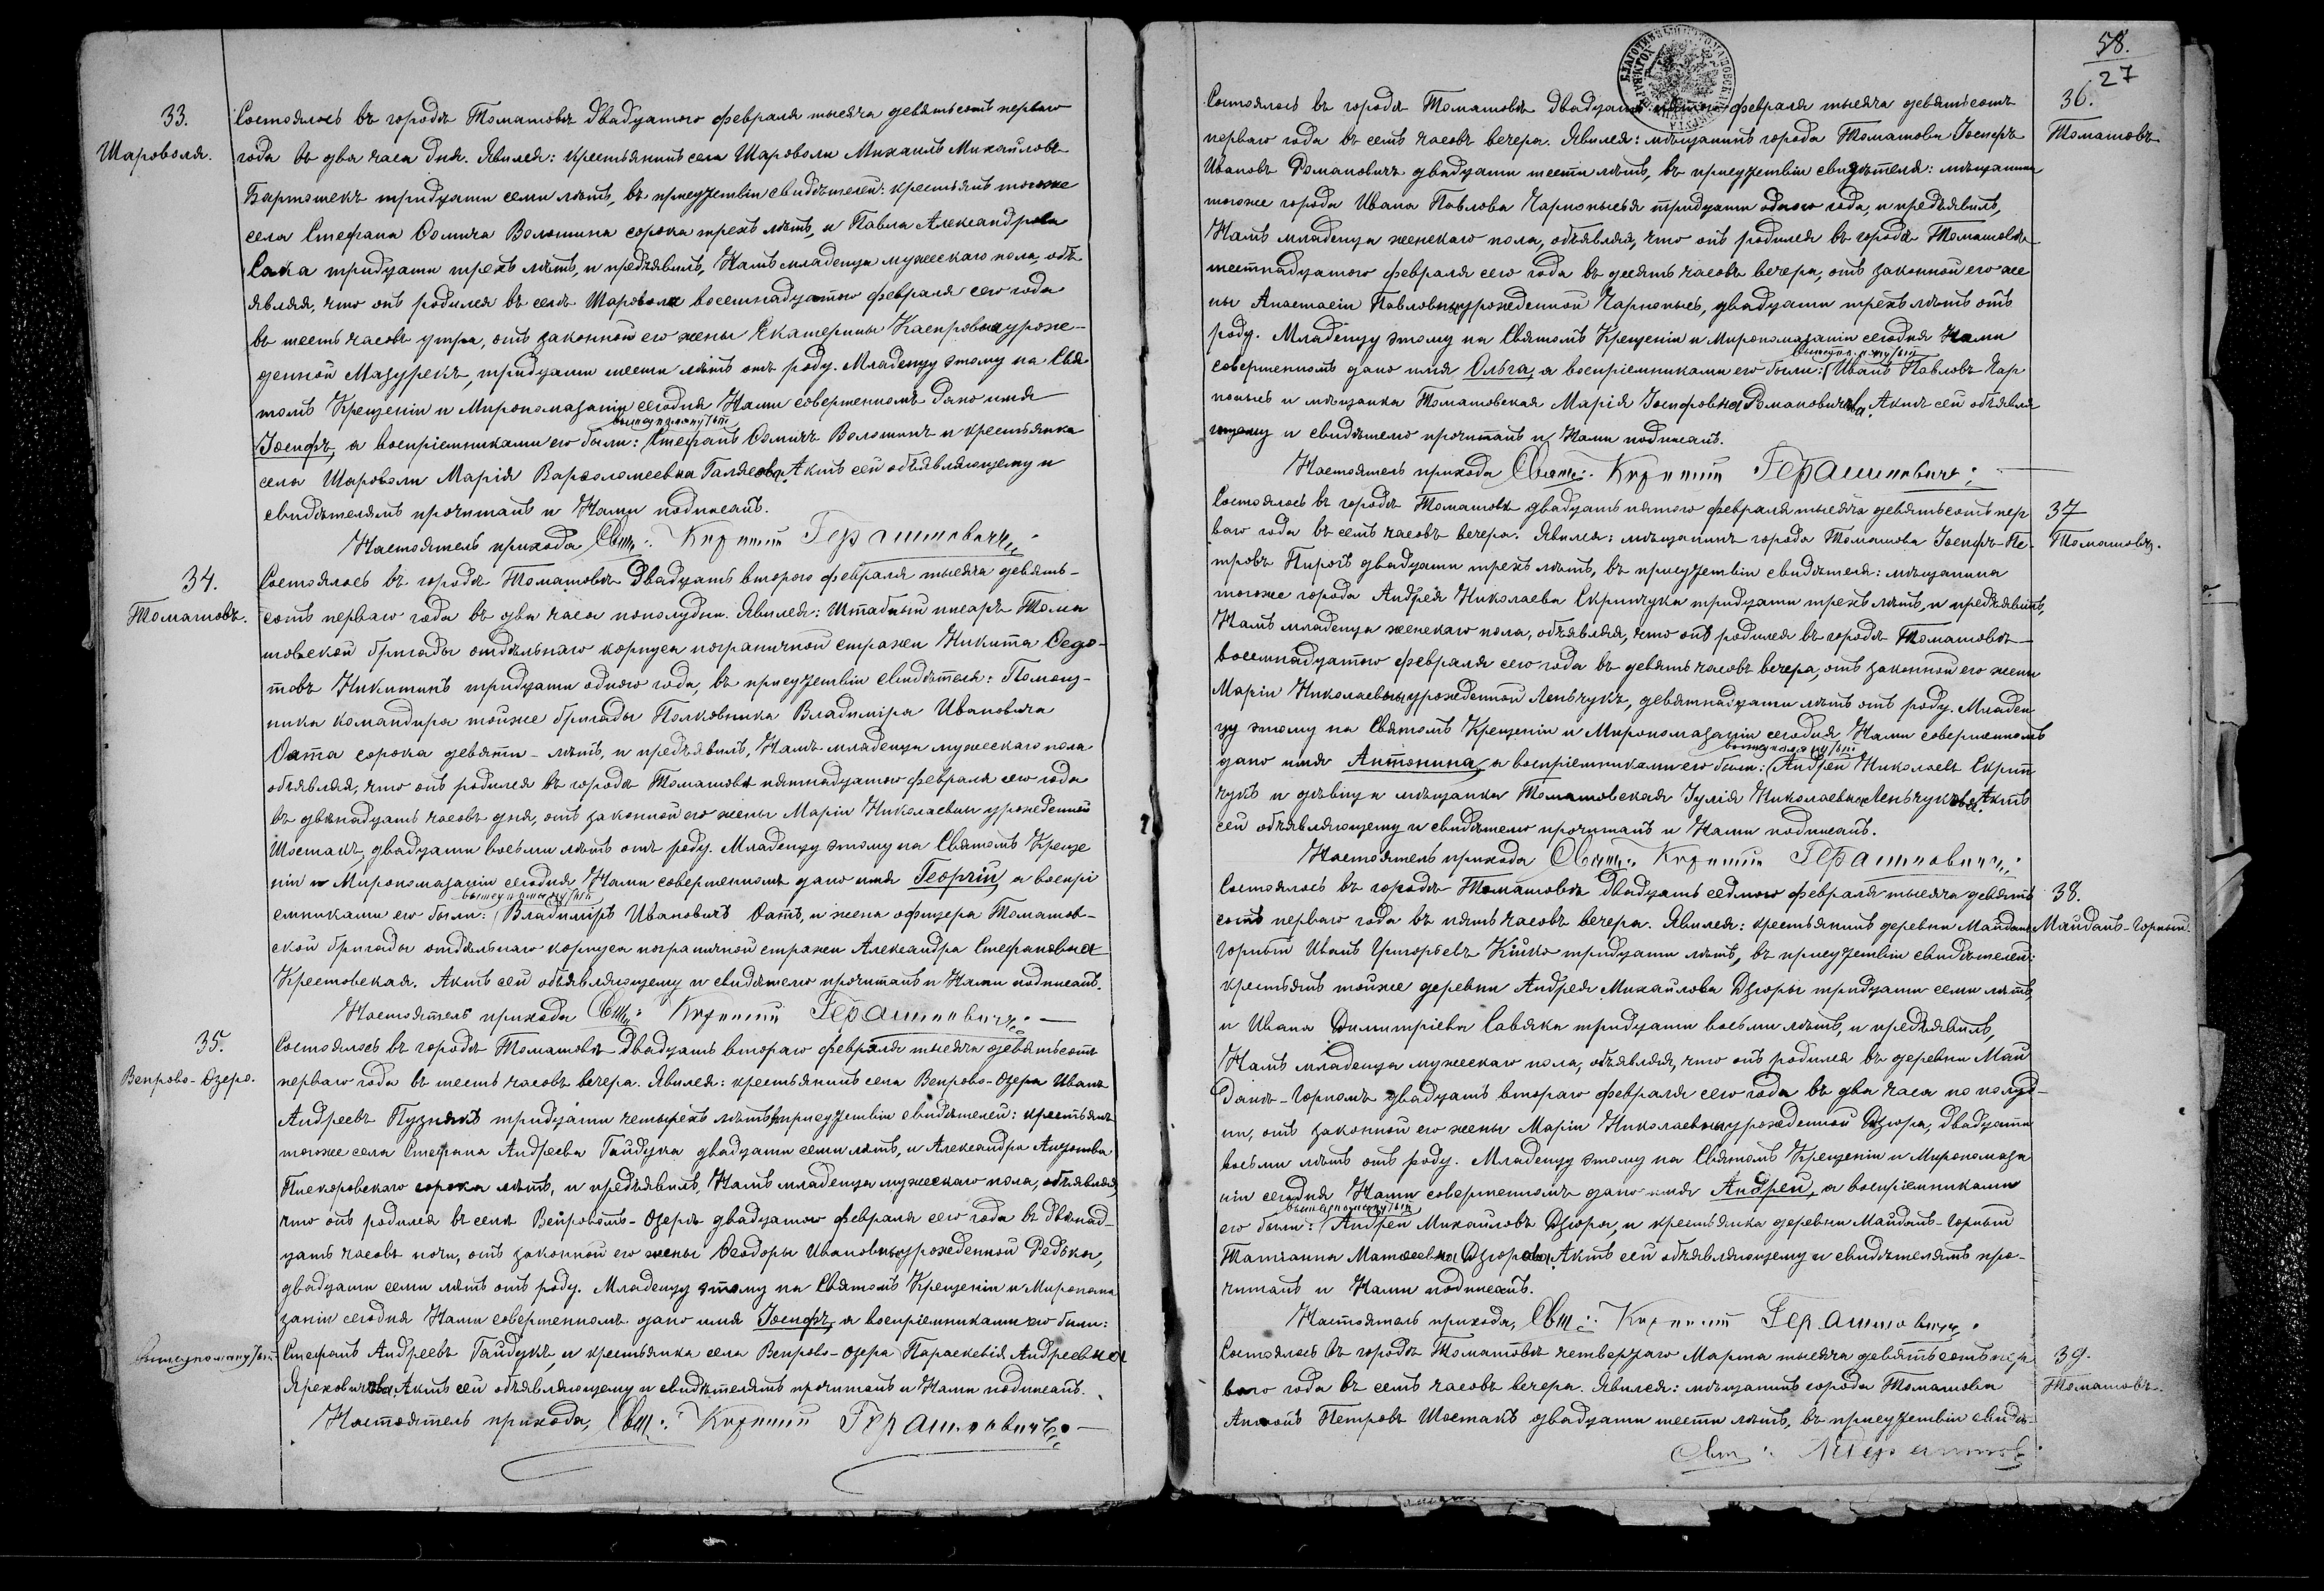 33.
Шароволя.
Состоялось въ городѣ Томашовѣ двадцатого февраля тысяча девятьсотъ перваго
года въ два часа дня. Явился: крестьянинъ села Шароволи Михаилъ Михайловъ
Бартошекъ тридцати семи лѣтъ, въ присутствіи свидѣтелей: крестьянъ тогоже
села Стефана Ѳомича Волошина сорока трехъ лѣтъ, и Павла Александрова
тридцати трехъ лѣтъ, и предъявилъ, Намъ младенца мужескаго пола, объ
являя, что онъ родился въ селѣ Шароволѣ восемнадцатого февраля сего года
въ шесть часовъ утра, отъ законной его жены Екатерины Каспровныурож-
денной Мазурекъ, тридцати шести лѣтъ отъ роду. Младенцу этому на Свя
томъ Крещеніи и Миропомазаніи сегодня Нами совершенномъ дано имя
вышеупомянутый
Іосифъ, а воспріемниками его были: Стефанъ Ѳомичъ Волошинъ и крестьянка
села Шароволи Марія Варѳоломеевна Актъ сей объявляющему и
свидѣтелямъ прочитанъ и Нами подписанъ.
Настоятель прихода Свящ: Корнилій Герашиновичъ
34.
Томашовъ.
Состоялось въ городѣ Томашовѣ двадцать второго февраля тысяча девять-
сотъ перваго года въ два часа пополудни. Явился: Штабный писарь Тома
шовской бригады отдѣльнаго корпуса пограничной стражи Никита Ѳедо-
товъ Никитинъ тридцати одного года, въ присутствіи свидѣтеля: Помощ-
ника командира тойже бригады Полковника Владиміра Ивановича
сорока девяти лѣтъ, и предъявилъ, Намъ младенца мужескаго пола
объявляя, что онъ родился въ городѣ Томашовѣ пятнадцатого февраля сего года
въ двѣнадцать часовъ дня, отъ законной его жены Маріи Николаевны урожденной
Шостакъ, двадцати восьми лѣтъ отъ роду. Младенцу этому на Святомъ Креще
ніи и Миропомазаніи сегодня Нами совершенномъ дано имя Георгій, а воспрі
вышеупомянутый
емниками его были: Владиміръ Ивановичъ и жена офицера Томашов-
ской бригады отдѣльнаго корпуса пограничной стражи Александра Стефановна
Крестовская. Актъ сей объявляющему и свидѣтелю прочитанъ и Нами подписанъ.
Настоятель прихода Свящ: Корнилій Герашиновичъ
35.
Вепрово-Озеро.
Состоялось въ городѣ Томашовѣ двадцать втораго февраля тысяча девятьсотъ
перваго года въ шесть часовъ вечера. Явился: крестьянинъ села Вепрово-Озера Иванъ
Андреевъ Пузнякъ тридцати четырехъ лѣтъ, присутствіи свидѣтелей: крестьянъ
тогоже села Стефана Андреева Гайдука двадцати семи лѣтъ, и Александра Антонова
Пискоровскаго сорока лѣтъ, и предъявилъ, Намъ младенца мужескаго пола, объявляя
что онъ родился въ селѣ Вепровомъ-Озерѣ двадцатого февраля сего года въ двѣнад-
цать часовъ ночи, отъ законной его жены Ѳеодоры Ивановныурожденной Редька,
двадцати семи лѣтъ отъ роду. Младенцу этому на Святомъ Крещеніи и Миропома
заніи сегодня Нами совершенномъ дано имя Іосифъ, а воспріемниками его были:
вышеупомянутый
Стефанъ Андреевъ Гайдукъ, и крестьянка села Вепрово-озера Параскевія Андреевна
Актъ сей объявляющему и свидѣтелямъ прочитанъ и Нами подписанъ.
Настоятель прихода, Свящ: Корнилій Герашиновичъ
58.
27
36.
Томашовъ
Состоялось въ городѣ Томашовѣ двадцать пятого февраля тысяча девятьсотъ
перваго года въ семь часовъ вечера. Явился: мѣщанинъ города Томашова Іосифъ
Ивановъ Романовичъ двадцати шести лѣтъ, въ присутствіи свидѣтеля: мѣщанина
тогоже города Ивана Павлова Чарнопыся тридцати одного года, и предъявилъ,
Намъ младенца женскаго пола, объявляя, что онъ родился въ городѣ Томашовѣ
шестнадцатого февраля сего года въ десять часовъ вечера, отъ законной его же
ны Анастасіи Павловныурожденной Чарнопысь, двадцати трехъ лѣтъ отъ
роду. Младенцу этому на Святомъ Крещеніи и Миропомазаніи сегодня Нами
вышеупомянутый
совершенномъ дано имя Ольга, а воспріемниками его были: Иванъ Павловъ Чар
нопысь и мѣщанка Томашовская Марія Іосифовна Романовичева. Актъ сей объявля
ющему и свидѣтелю прочитанъ и Нами подписанъ.
Настоятель прихода Свящ: Корнилій Герашиновичъ
37
Томашовъ.
Состоялось въ городѣ Томашовѣ двадцать пятого февраля тысяча девятьсотъ пер
ваго года въ семь часовъ вечера. Явился: мѣщанинъ города Томашова Іосифъ Пе-
тровъ Пирогъ двадцати трехъ лѣтъ, въ присутствіи свидѣтеля: мѣщанина
тогоже города Андрея Николаева Скрипчука тридцати трехъ лѣтъ, и предъявилъ,
Намъ младенца женскаго пола, объявляя, что онъ родился въ городѣ Томашовѣ
восемнадцатого февраля сего года въ девять часовъ вечера, отъ законной его жены
Маріи Николаевныурожденной Леньчукъ, девятнадцати лѣтъ отъ роду. Младен
цу этому на Святомъ Крещеніи и Миропомазаніи сегодня Нами совершенномъ
вышеупомянутый
дано имя Антонина, а воспріемниками его были: Андрей Николаевъ Скрип
чукъ и дѣвица мѣщанка Томашовская Іулія Николаевна Леньчукова. Актъ
сей объявляющему и свидѣтелю прочитанъ и Нами подписанъ.
Настоятель прихода Свящ: Корнилій Герашиновичъ
38.
Майданъ-Горный.
Состоялось въ городѣ Томашовѣ двадцать седмого февраля тысяча девять
сотъ перваго года въ пять часовъ вечера. Явился: крестьянинъ деревни Майданъ
Горный Иванъ Григорьевъ Кицко тридцати лѣтъ, въ присутствіи свидѣтелей:
крестьянъ тойже деревни Андрея Михайлова Дзюры тридцати семи лѣтъ,
и Ивана Димитріева Савяка тридцати восьми лѣтъ, и предъявилъ,
Намъ младенца мужескаго пола, объявляя, что онъ родился въ деревни Май
данѣ-Горномъ двадцать втораго февраля сего года въ два часа по полуд-
ни, отъ законной его жены Маріи Николаевныурожденной Дзюра, двадцати
восьми лѣтъ отъ роду. Младенцу этому на Святомъ Крещеніи и Миропомаза
ніи сегодня Нами совершенномъ дано имя Андрей, а воспріемниками
вышеупомянутый
его были: Андрей Михайловъ Дзюра, и крестьянка деревни Майданъ-Горный
Татіанна Матѳеевна Дзюрова. Актъ сей объявляющему и свидѣтелямъ про-
читанъ и Нами подписанъ.
Настоятель прихода, Свящ: Корнилій Герашиновичъ
39.
Томашовъ.
Состоялось въ городѣ Томашовѣ четвертаго Марта тысяча девятьсотъ пер
ваго года въ семь часовъ вечера. Явился: мѣщанинъ города Томашова
Антонъ Петровъ Шостакъ двадцати шести лѣтъ, въ присутствіи свидѣ-